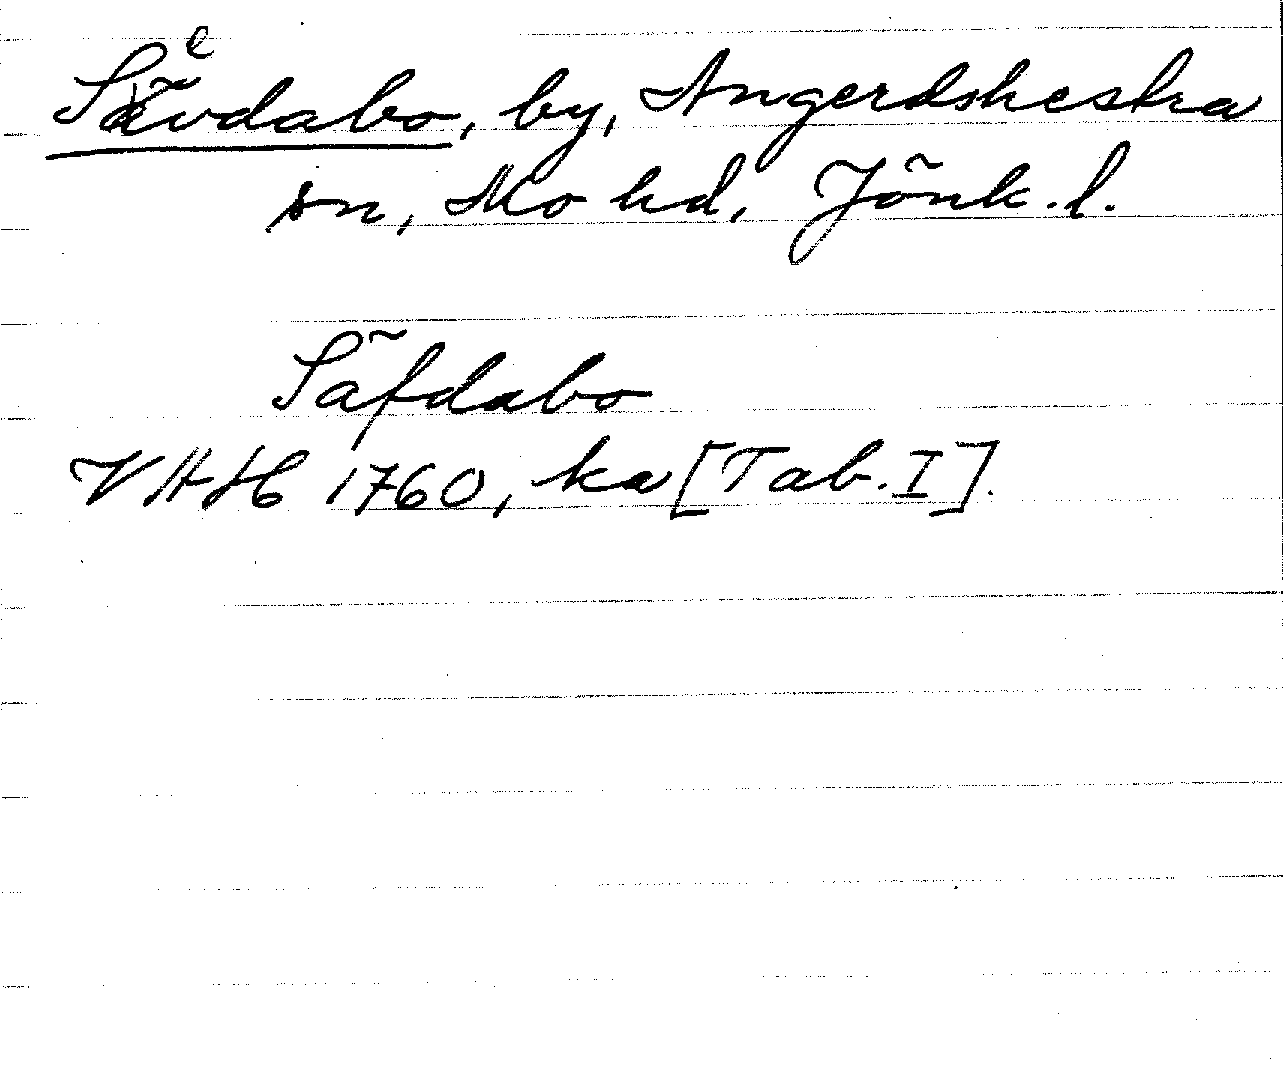 Sävdabo, by, Angerdshestra
sn, Mo hd, Jönk. l.
Säfdabo
VHAH 1760, ka [Tab. I].